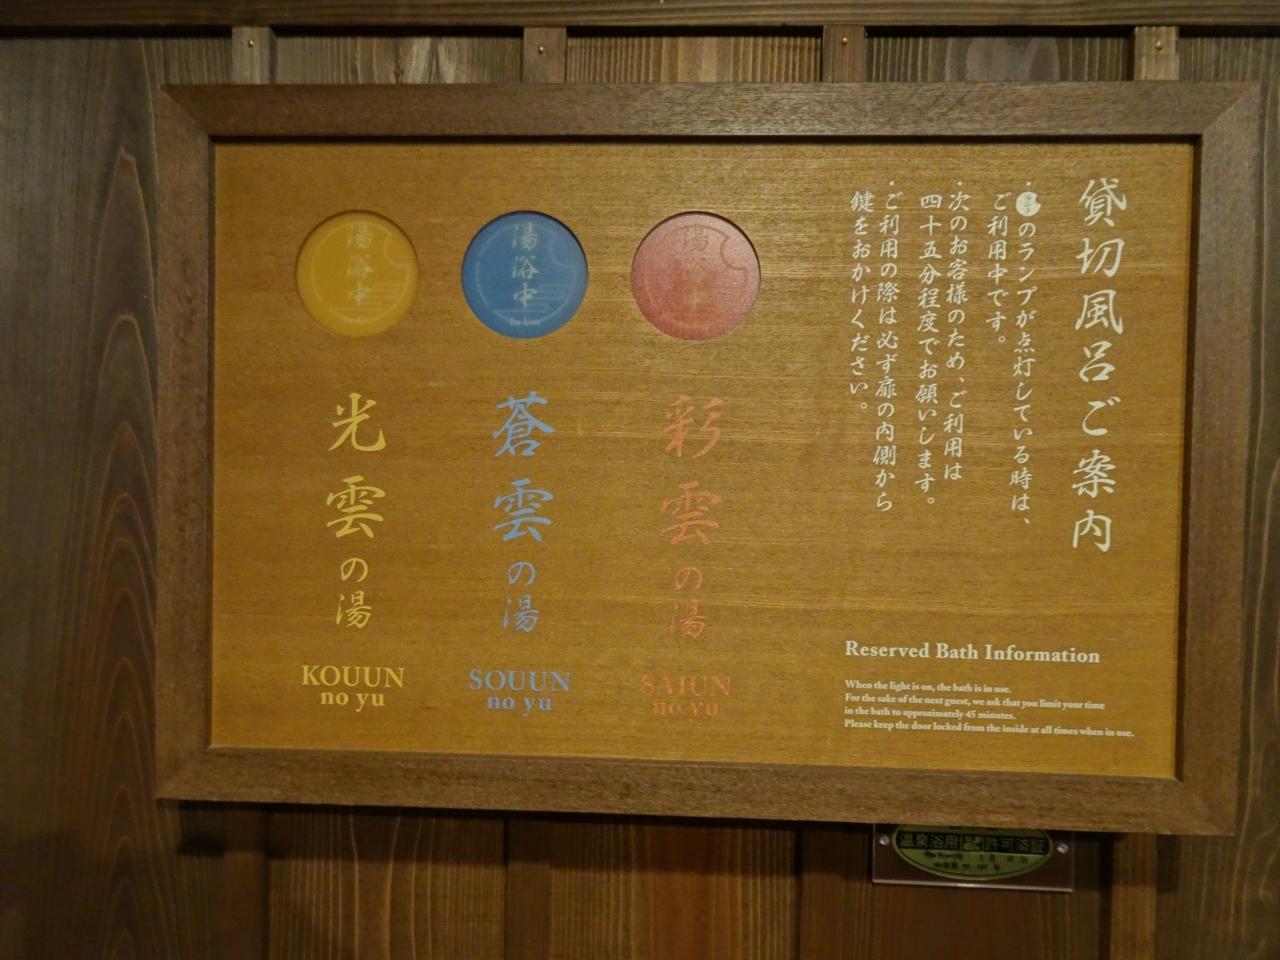 貸切風呂ご案内
・湯浴中のランプが点灯している時は、
ご利用中です。
・次のお客様のため、ご利用は
四十五分程度でお願いします。
・ご利用の際は必ず扉の内側から
鍵をおかけください。
湯浴中
湯浴中
In Use
湯浴中
In Use
彩雲の湯
SAIUN
no yu
蒼雲の湯
SOUUN
no yu
光雲の湯
KOUUN
no yu
Reserved Bath Information
When the light is on, the bath is in use.
For the sake of the next guest, we ask that you limit your time
in the bath to approximately 45 minutes.
Please keep the door locked from the inside at all times when in use.
温泉浴用 許可済証